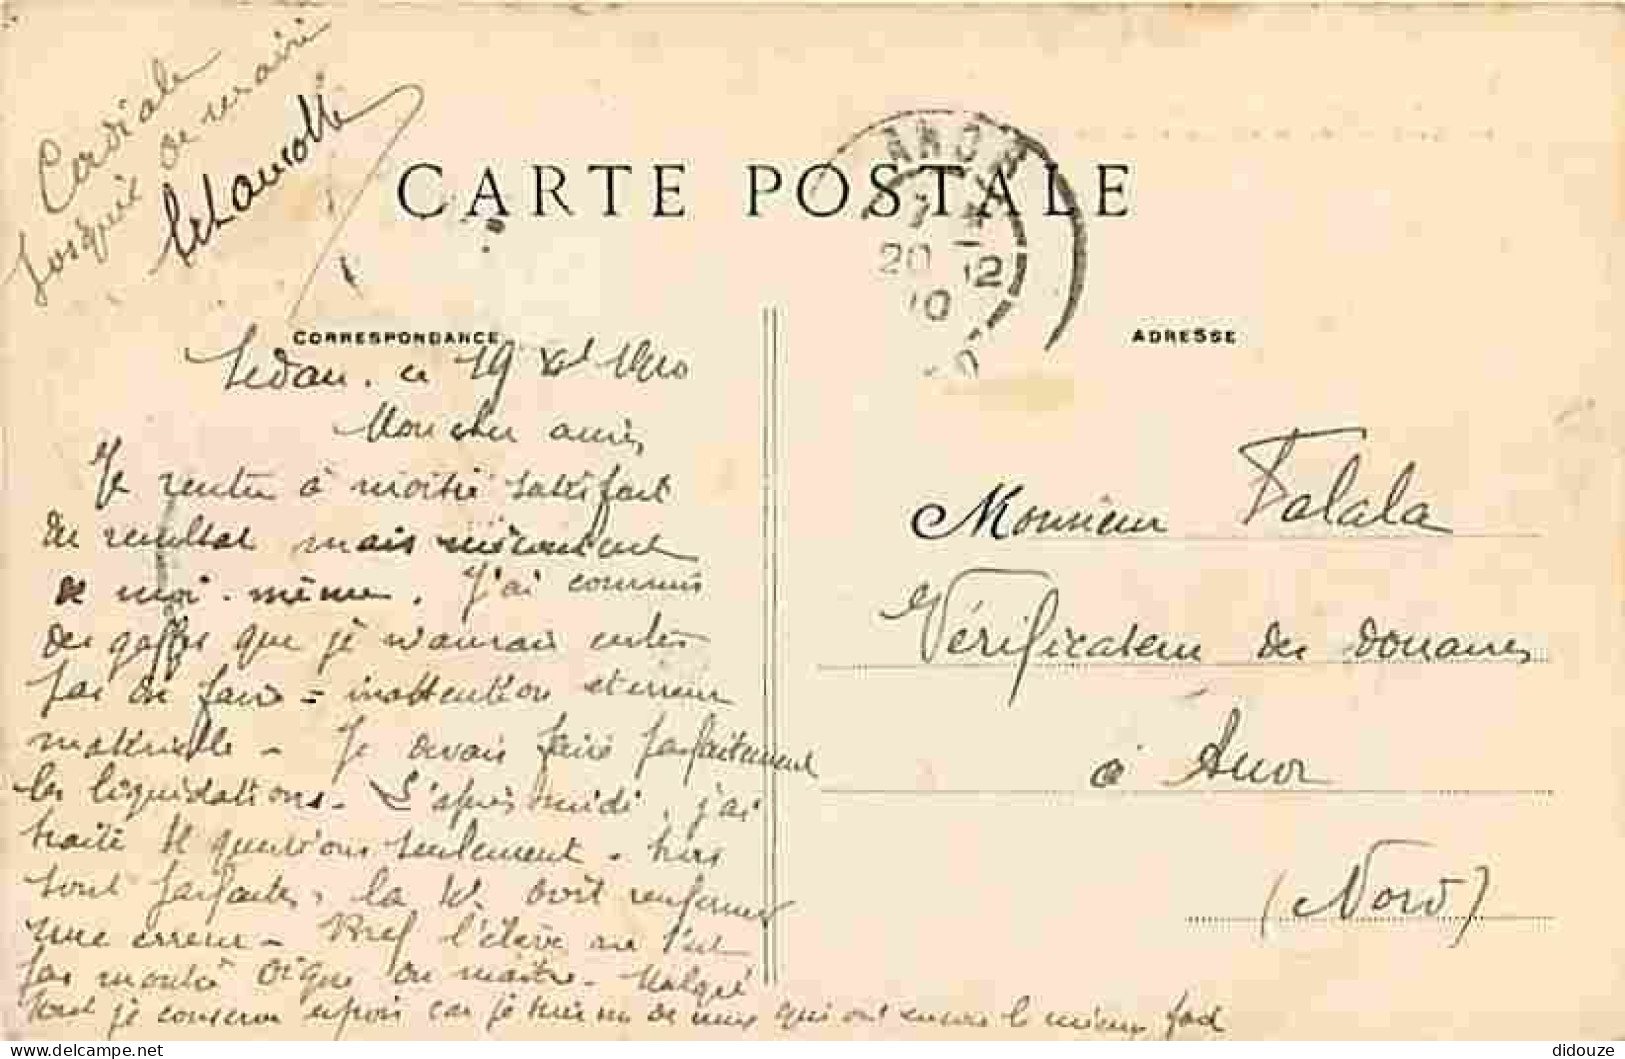 Cordiale
de main
CARTE POSTALE
ANOR
7
20 12
10
CORRESPONDANCE
ADRESSE
Sedan. ce 19 Xbre 1910
Mon cher ami,
Je rentre à moitié satisfait
du resultat mais mécontent
de moi-même. J'ai commis
des gaffes que je n'aurais
pas dû faire = inattention et erreur
matérielle - Je devais faire parfaitement
les liquidations - L'après midi, j'ai
traité 4 questions seulement - trois
sont parfaites, la 4e doit renfermer
une erreur - Bref l'élève ne s'est
pas montré digne du maître - Malgré
tout je conserve espoir car je suis un de ceux qui ont encore le mieux fait
Monsieur Falala
Vérificateur des douanes
à Anor
(Nord)
didouze @ delcampe.net